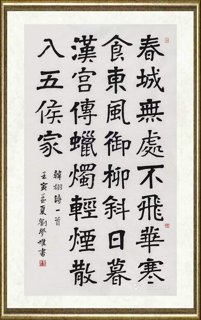 春城無處不飛華寒
食東風御柳斜日暮
漢宮傳蠟燭輕煙散
入五侯家
韓翃詩一首
壬寅孟夏劉學惟書